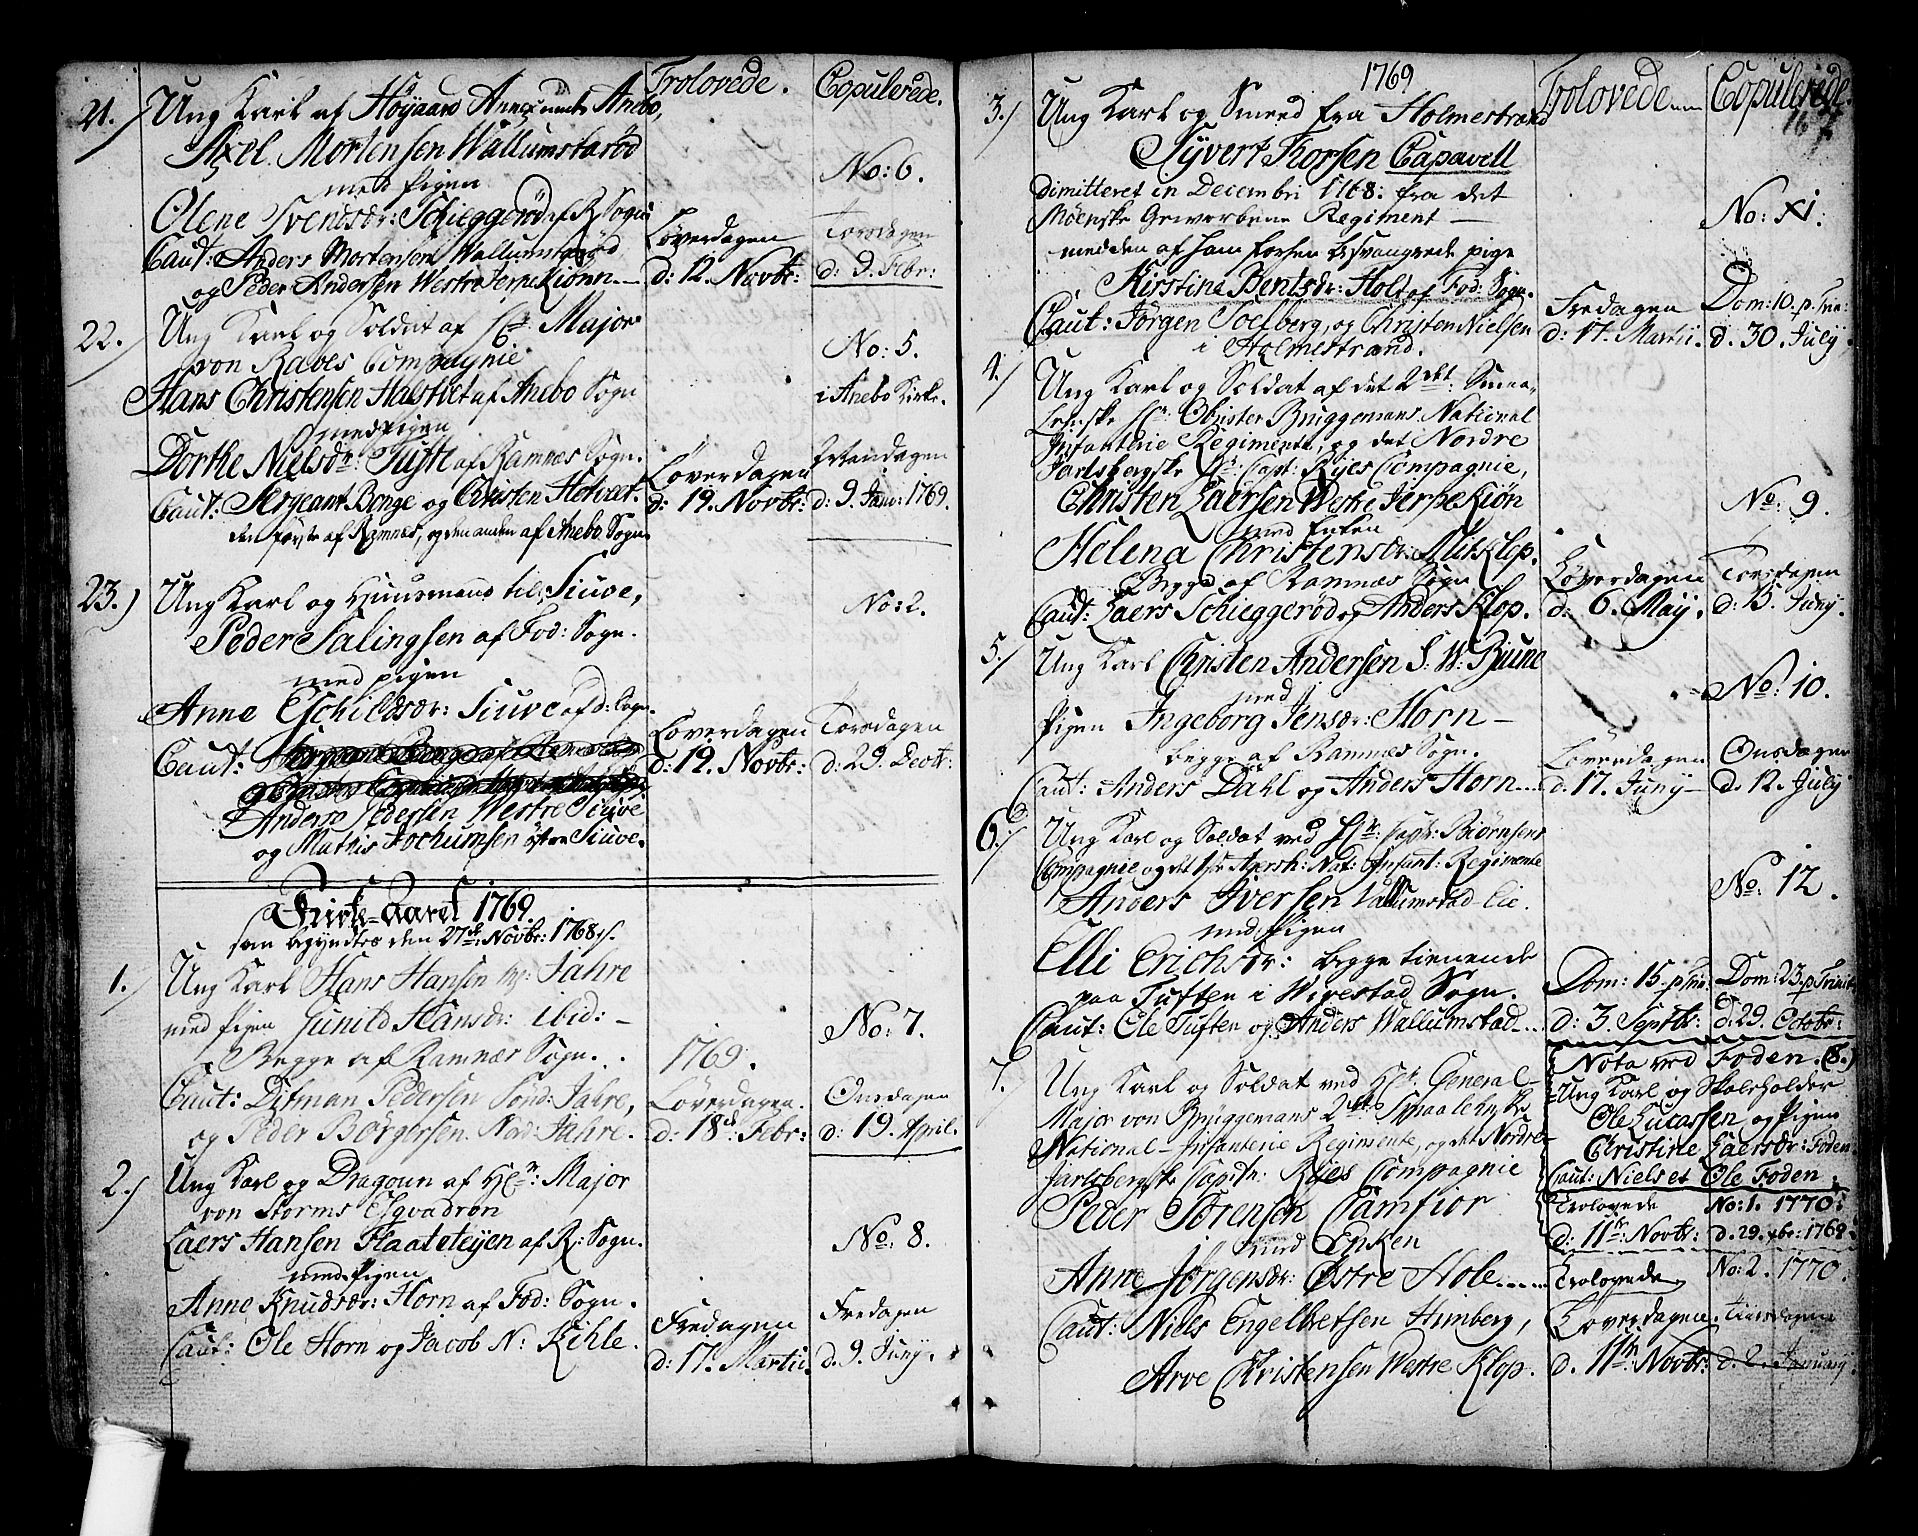 Trolovede. Copulerede.
21.) Ung Karl af Høygaard Annex unde Anebo,
Axel Mortensen Wallumstarød No: 6.
med Pigen
Olene Svendsdr: Schieggerød af R. Sogn Løverdagen Torsdagen
Caut: Anders Mortensen Wallumsrød
og Peder Andersen Westre JerpeKiønn d: 12. Novbr: d: 9. Febr:
22.) Ung Karl og Soldat af Hr. Major
von Raves Compagnie No: 5.
Hans Christensen Halstvet af Anebo Sogn i Anebo Kirke.
med Pigen
Dorthe Nielsdr: Tufte af Ramnæs Sogn. Løverdagen Mandagen
Caut: Sergeant Benge og Christen Hotvet. d: 19. Novbr: d: 9. Janv: 1769.
den første af Ramnes, og den anden af Anebo Sogn.
23.) Ung Karl og Huusmand til Siuve, No: 2.
Peder Salingsen af Fod: Sogn.
med pigen
Anne Eschildsdr: Siuve af d: Sogn. Løverdagen Torsdagen
Caut: d: 19. Novbr: d: 29. Decbr:
Anders Pedersen Westre Siuve
og Mathis Jochumsen østre Siuve.
Kirke-Aaret 1769.
som begyndtes den 27de Novbr: 1768.
1.) Ung Karl Hans Hansen Jahre
med Pigen Gunild Hansdr: ibid: — No: 7.
Begge af Ramnæs Sogn. 1769.
Caut: Ditman Pedersen Sond: Jahre, Løverdagen Onsdagen
og Peder Börgersen Nord: Jahre. d: 18de Febr: d: 19. April.
2.) Ung Karl og Dragoun af Hr: Major
von Storms Esqvadron
Laers Hansen Flaateteyen af R: Sogn. No: 8.
med Pigen
Anne Knudsdr: Horn af Fod: Sogn. Fredagen Fredagen
Caut: Ole Horn og Jacob N: Kihle. d: 17. Martii. d. 9. Juny.
1769
Trolovede Copulerede.
3.) Ung Karl og Smeed fra Holmestrand
Syvert Thorsen Capavell
dimitteret in Decembri 1768: fra det
Møenske Geworbene Regiment — No: XI.
med den af ham forhen besvangrede pige
Kirstina Bentsdr: Hold af Fod: Sogn. Fredagen Dom: 10. p. Trin:
Caut: Jørgen Soelberg, og Christen Nielsen d: 17. Martii. d. 30. July.
i Holmestrand.
4.) Ung Karl og Soldat af det 2det Smaa-
lehnske Hr. Obrister Bruggemans National
Infanterie Regimente, og det Nordre
Jarlsbergske Hr. Capt: Ryes Compagnie,
Christen Laersen Westre JerpeKiøn No: 9.
med Enken
Helena Christensdr: Mit Klop.
Begge af Ramnæs Sogn Løverdagen Torsdagen
Caut: Laers Schieggerød og Anders Klop. d: 6. May. d: 15. Juny.
5.) Ung Karl Christen Andersen S. W: Bjune
med No: 10.
Pigen Ingeborg Jensdr: Horn —
begge af Ramnæs Sogn. Løverdagen Onsdagen
Caut: Anders Dahl og Anders Horn d: 17. Juny — d. 12. July
6.) Ung Karl og Soldat ved Hr: Capt: Biörnsens
Compagnie og det 1ste Agersh: Nat: Infant: Regimente
Anders Iversen Vallumstad-Eie. No: 12.
med Pigen
Elli Erichsdr: begge tienende
paa Tuften i Wivestad Sogn. Dom: 15. p Trin: Dom: 23. p Trinit
Caut: Ole Tuften og Anders Wallumstad d: 3. Septbr: d: 29. Octobr:
7. Ung Karl og Soldat ved Hr. General-
Major von Bruggemans 2det Smaalehnske
National-Infanterie Regimente, og det Nordre
Jarlsbergske Capitn: Ryes Compagnie
Peder Sörensen Camfior
med Enken
Anne Jørgensdr: Østre Hole
Caut: Niels Engelbretsen Himberg,
Arve Christensen Westre Klop.
Nota ved Foden. (8.)
Ung Karl og Skoleholder
Ole Lucassen og Pigen
Christine Laersdr: Foden
Caut: Niels et Ole Foden
Trolovede No: 1. 1770.
d: 11te Novbr: d. 29. xbr: 1769
Trolovede No: 2. 1770.
Løverdagen Tiirsdagen
d. 11te Novbr: d. 2. January.